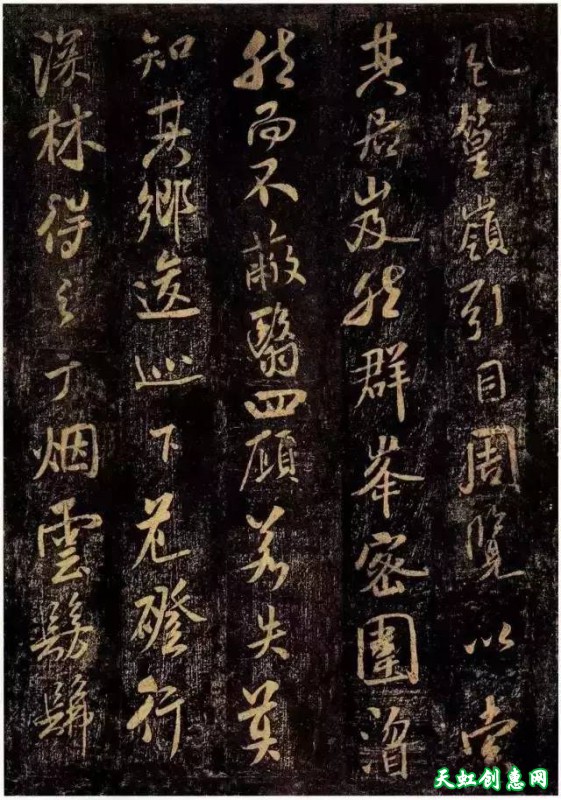 風篁嶺引目周覽以索
其居岌然群峯密圍溍
然而不蔽翳四顧若失莫
知其鄉逡巡下危磴行
深林得之於烟雲髣髴
天虹创惠网